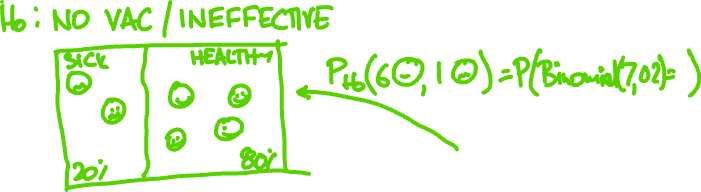 H₀: NO VAC / INEFFECTIVE
SICK HEALTHY
P_H₀(6☺, 1☹) = P(Binomial(7,02)= )
20% 80%